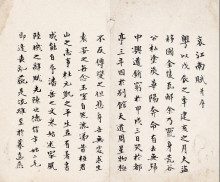 哀江南賦并序
粵以戊辰之年建亥之月大盜
移國金陵瓦解余乃竄身荒谷
公私塗炭華陽奔命有去無歸
中興道銷窮於甲戌三日哭於都
亭三年囚於別館天道周星物極
不反傅燮之但悲身世無處求生
袁安之每念王室自然流涕昔桓君
山之志事杜元凱之平生並有著書
咸能自序潘岳之文采始述家風
陸機之辭賦先陳世德信年始二毛
即逢喪亂藐是流離至於暮齒